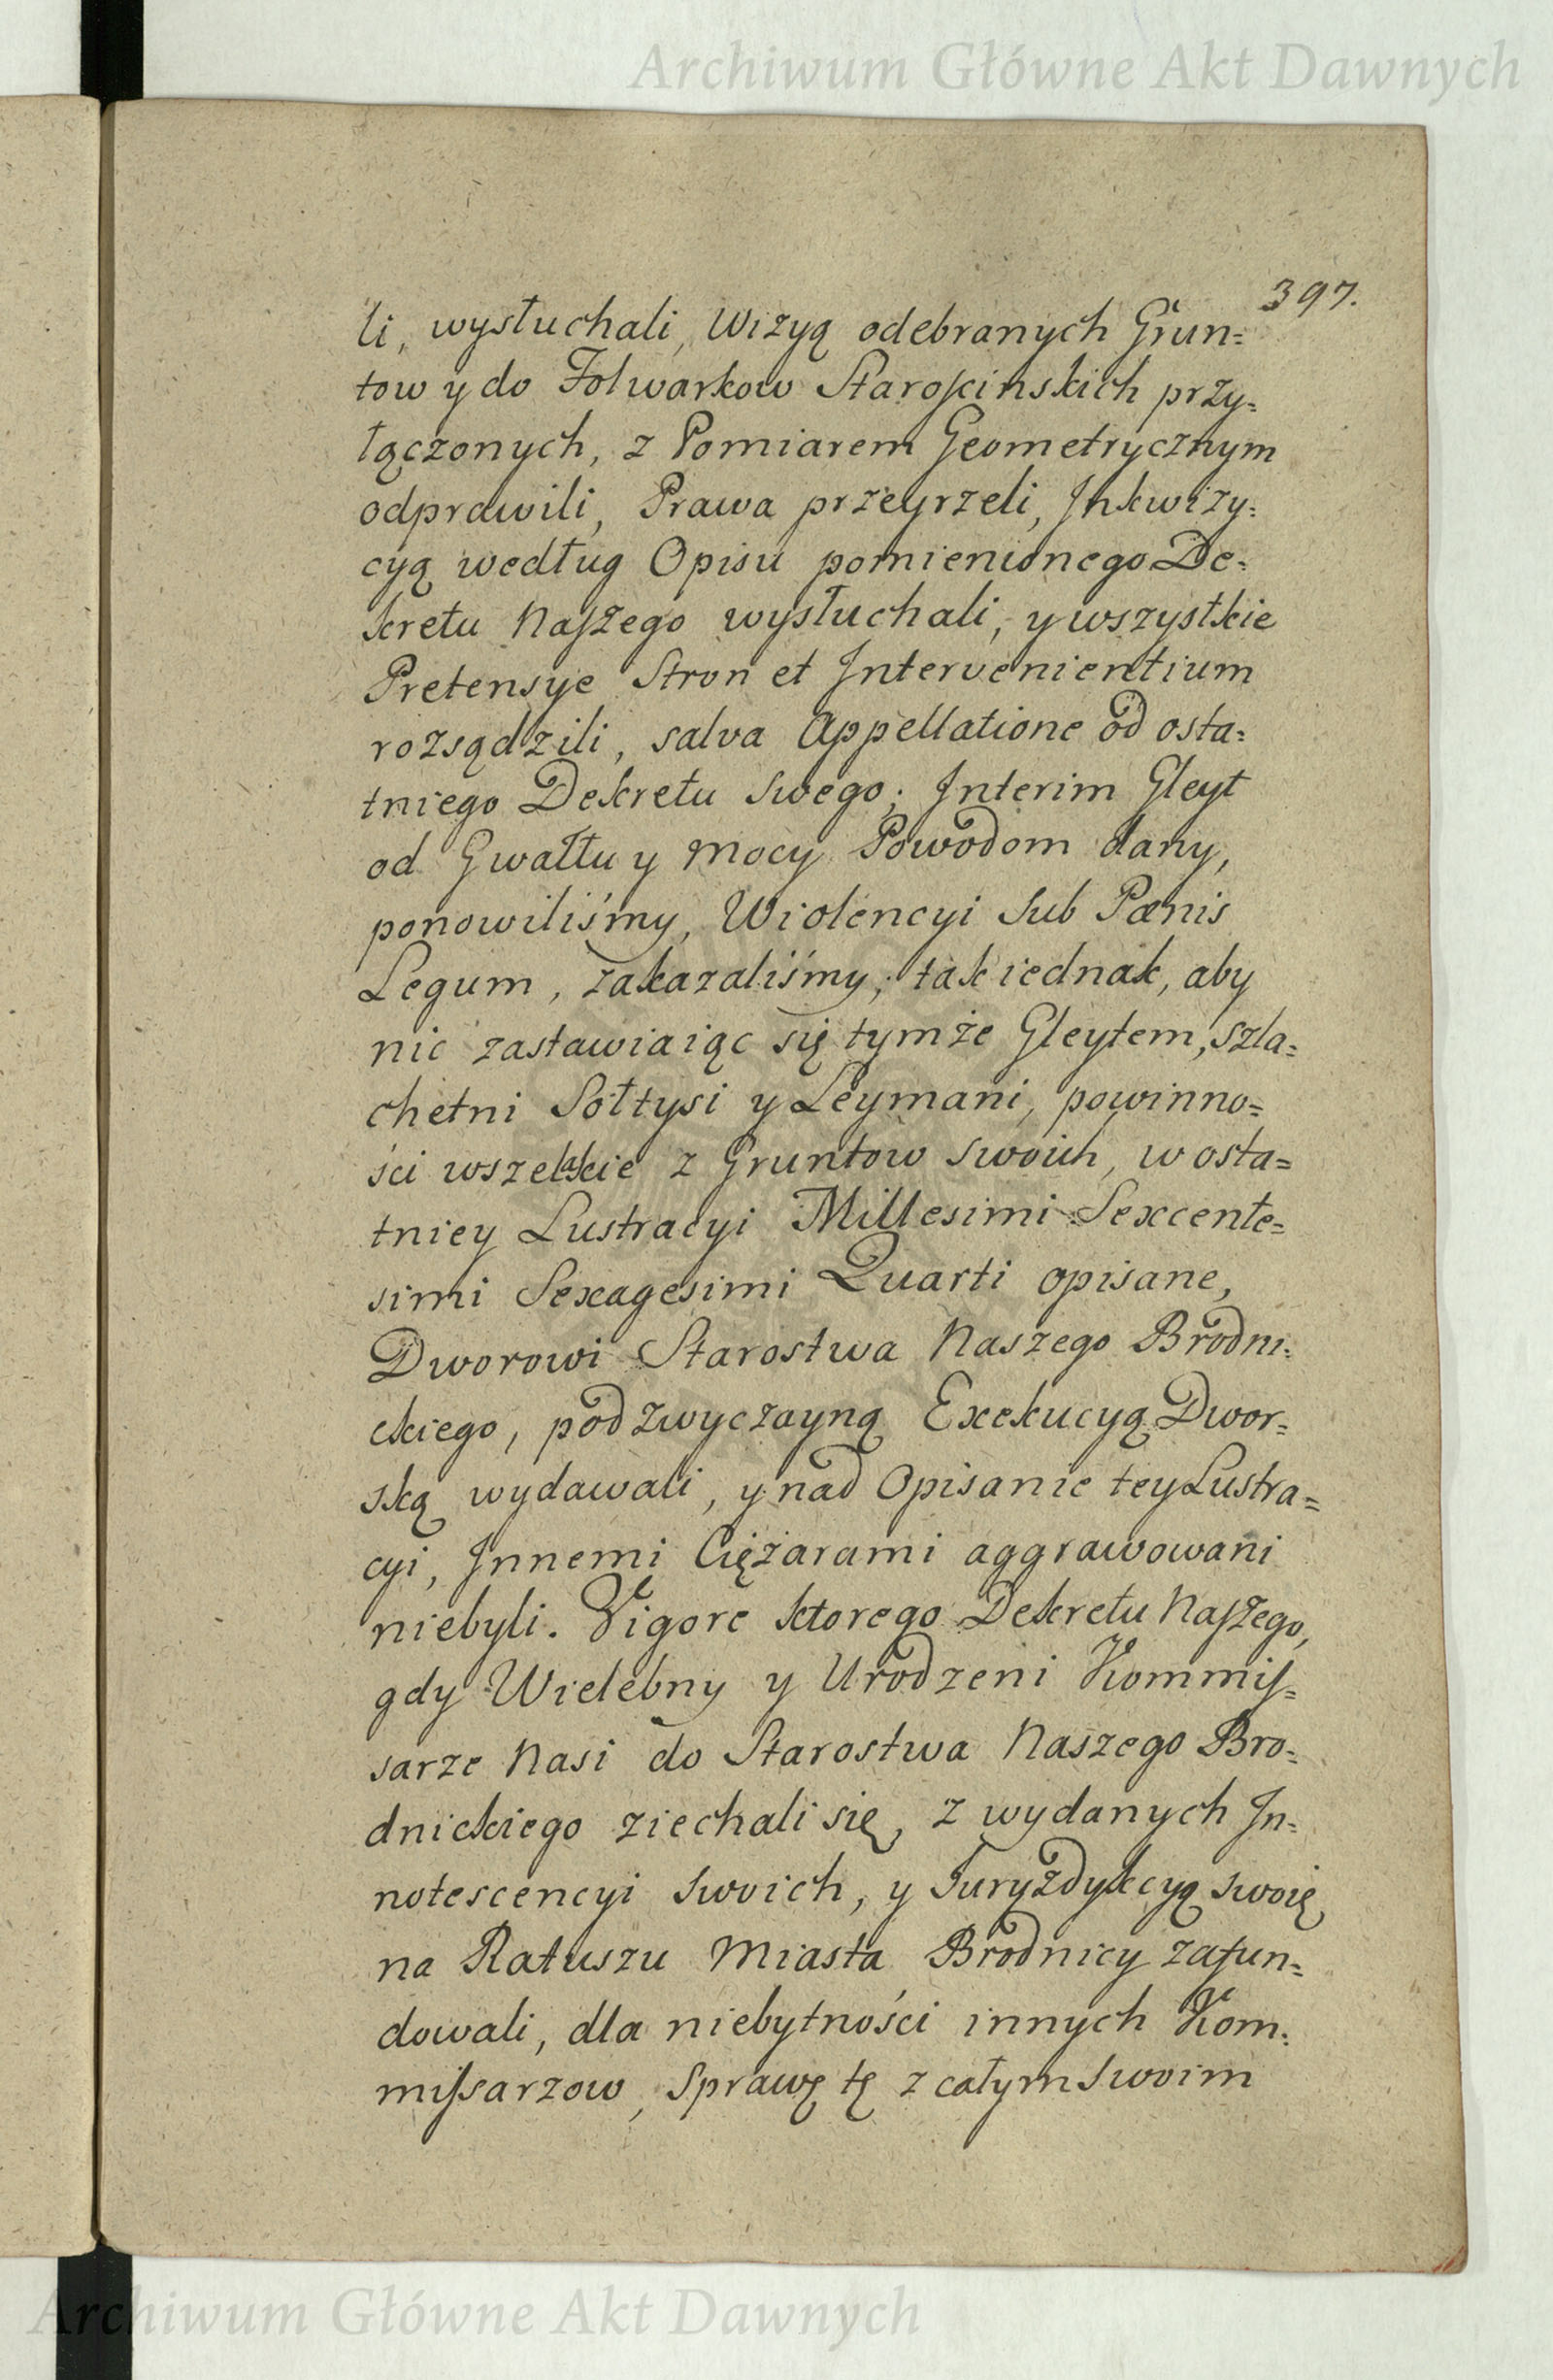 Archiwum Główne Akt Dawnych
397.
li, wysłuchali, Wizyą odebranych Grun=
tow y do Folwarkow Staroscinskich przy=
łączonych, z Pomiarem Geometrycznym
odprawili, Prawa przeyrzeli, Inkwizy=
cyą według Opisu pomienionego De=
kretu Naszego wysłuchali, y wszystkie
Pretensye Stron et Intervenientium
rozsądzili, salva Appellatione od osta=
tniego Dekretu swego; Interim Gleyt
od Gwałtu y Mocy Powodom dany,
ponowiliśmy, Wiolencyi sub Pœnis
Legum, zakazaliśmy; tak iednak, aby
nic zastawiaiąc się tymże Gleytem, szla=
chetni Sołtysi y Leymani, powinno=
ści wszelakie z Gruntow swoich, w osta=
tniey Lustracyi Millesimi Sexcente=
simi Sexagesimi Quarti opisane,
Dworowi Starostwa Naszego Brodni=
ckiego, pod zwyczayną Exekucyą Dwor=
ską wydawali, y nad Opisanie tey Lustra=
cyi, Innemi Ciężarami aggrawowani
niebyli. Vigore ktorego Dekretu Naszego,
gdy Wielebny y Urodzeni Kommis=
sarze Nasi do Starostwa Naszego Bro=
dnickiego ziechali się, z wydanych In=
notescencyi swoich, y Juryzdykcyą swoię
na Ratuszu Miasta Brodnicy zafun=
dowali, dla niebytności innych Kom=
missarzow, Sprawę tę z całym swoim
Archiwum Główne Akt Dawnych